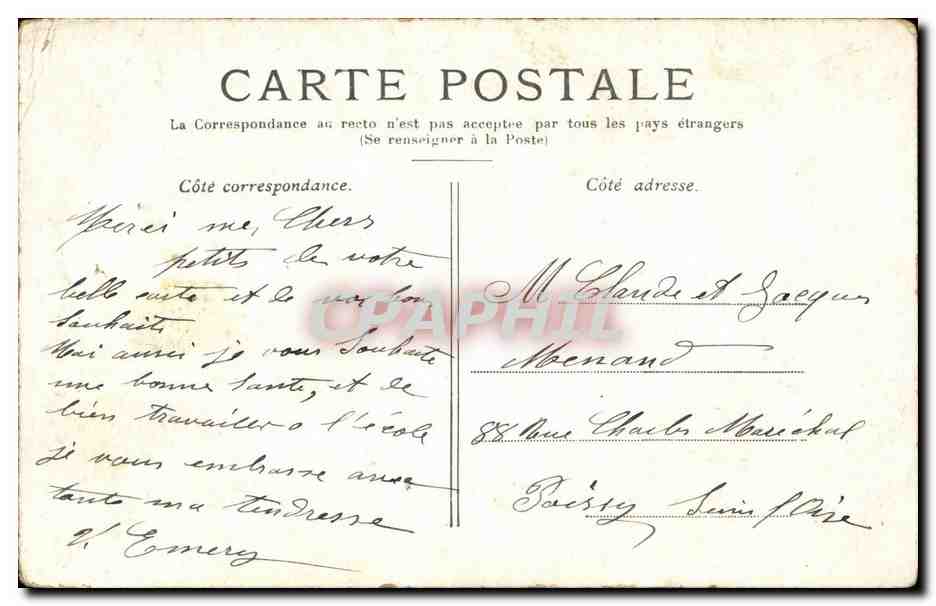 CARTE POSTALE
La Correspondance au recto n'est pas acceptée par tous les pays étrangers
(Se renseigner à la Poste)
Côté correspondance.
Merci mes Chers
petits de votre
belle carte et de vos bon
souhaits
Moi aussi je vous Souhaite
une bonne Santé, et de
bien travailler a l'école
je vous embrasse avec
toute ma tendresse
V. Emery
Côté adresse.
M Claude et Jacques
Menand
88 Rue Charles Maréchal
Poissy Seine et Oise
CPAPHIL